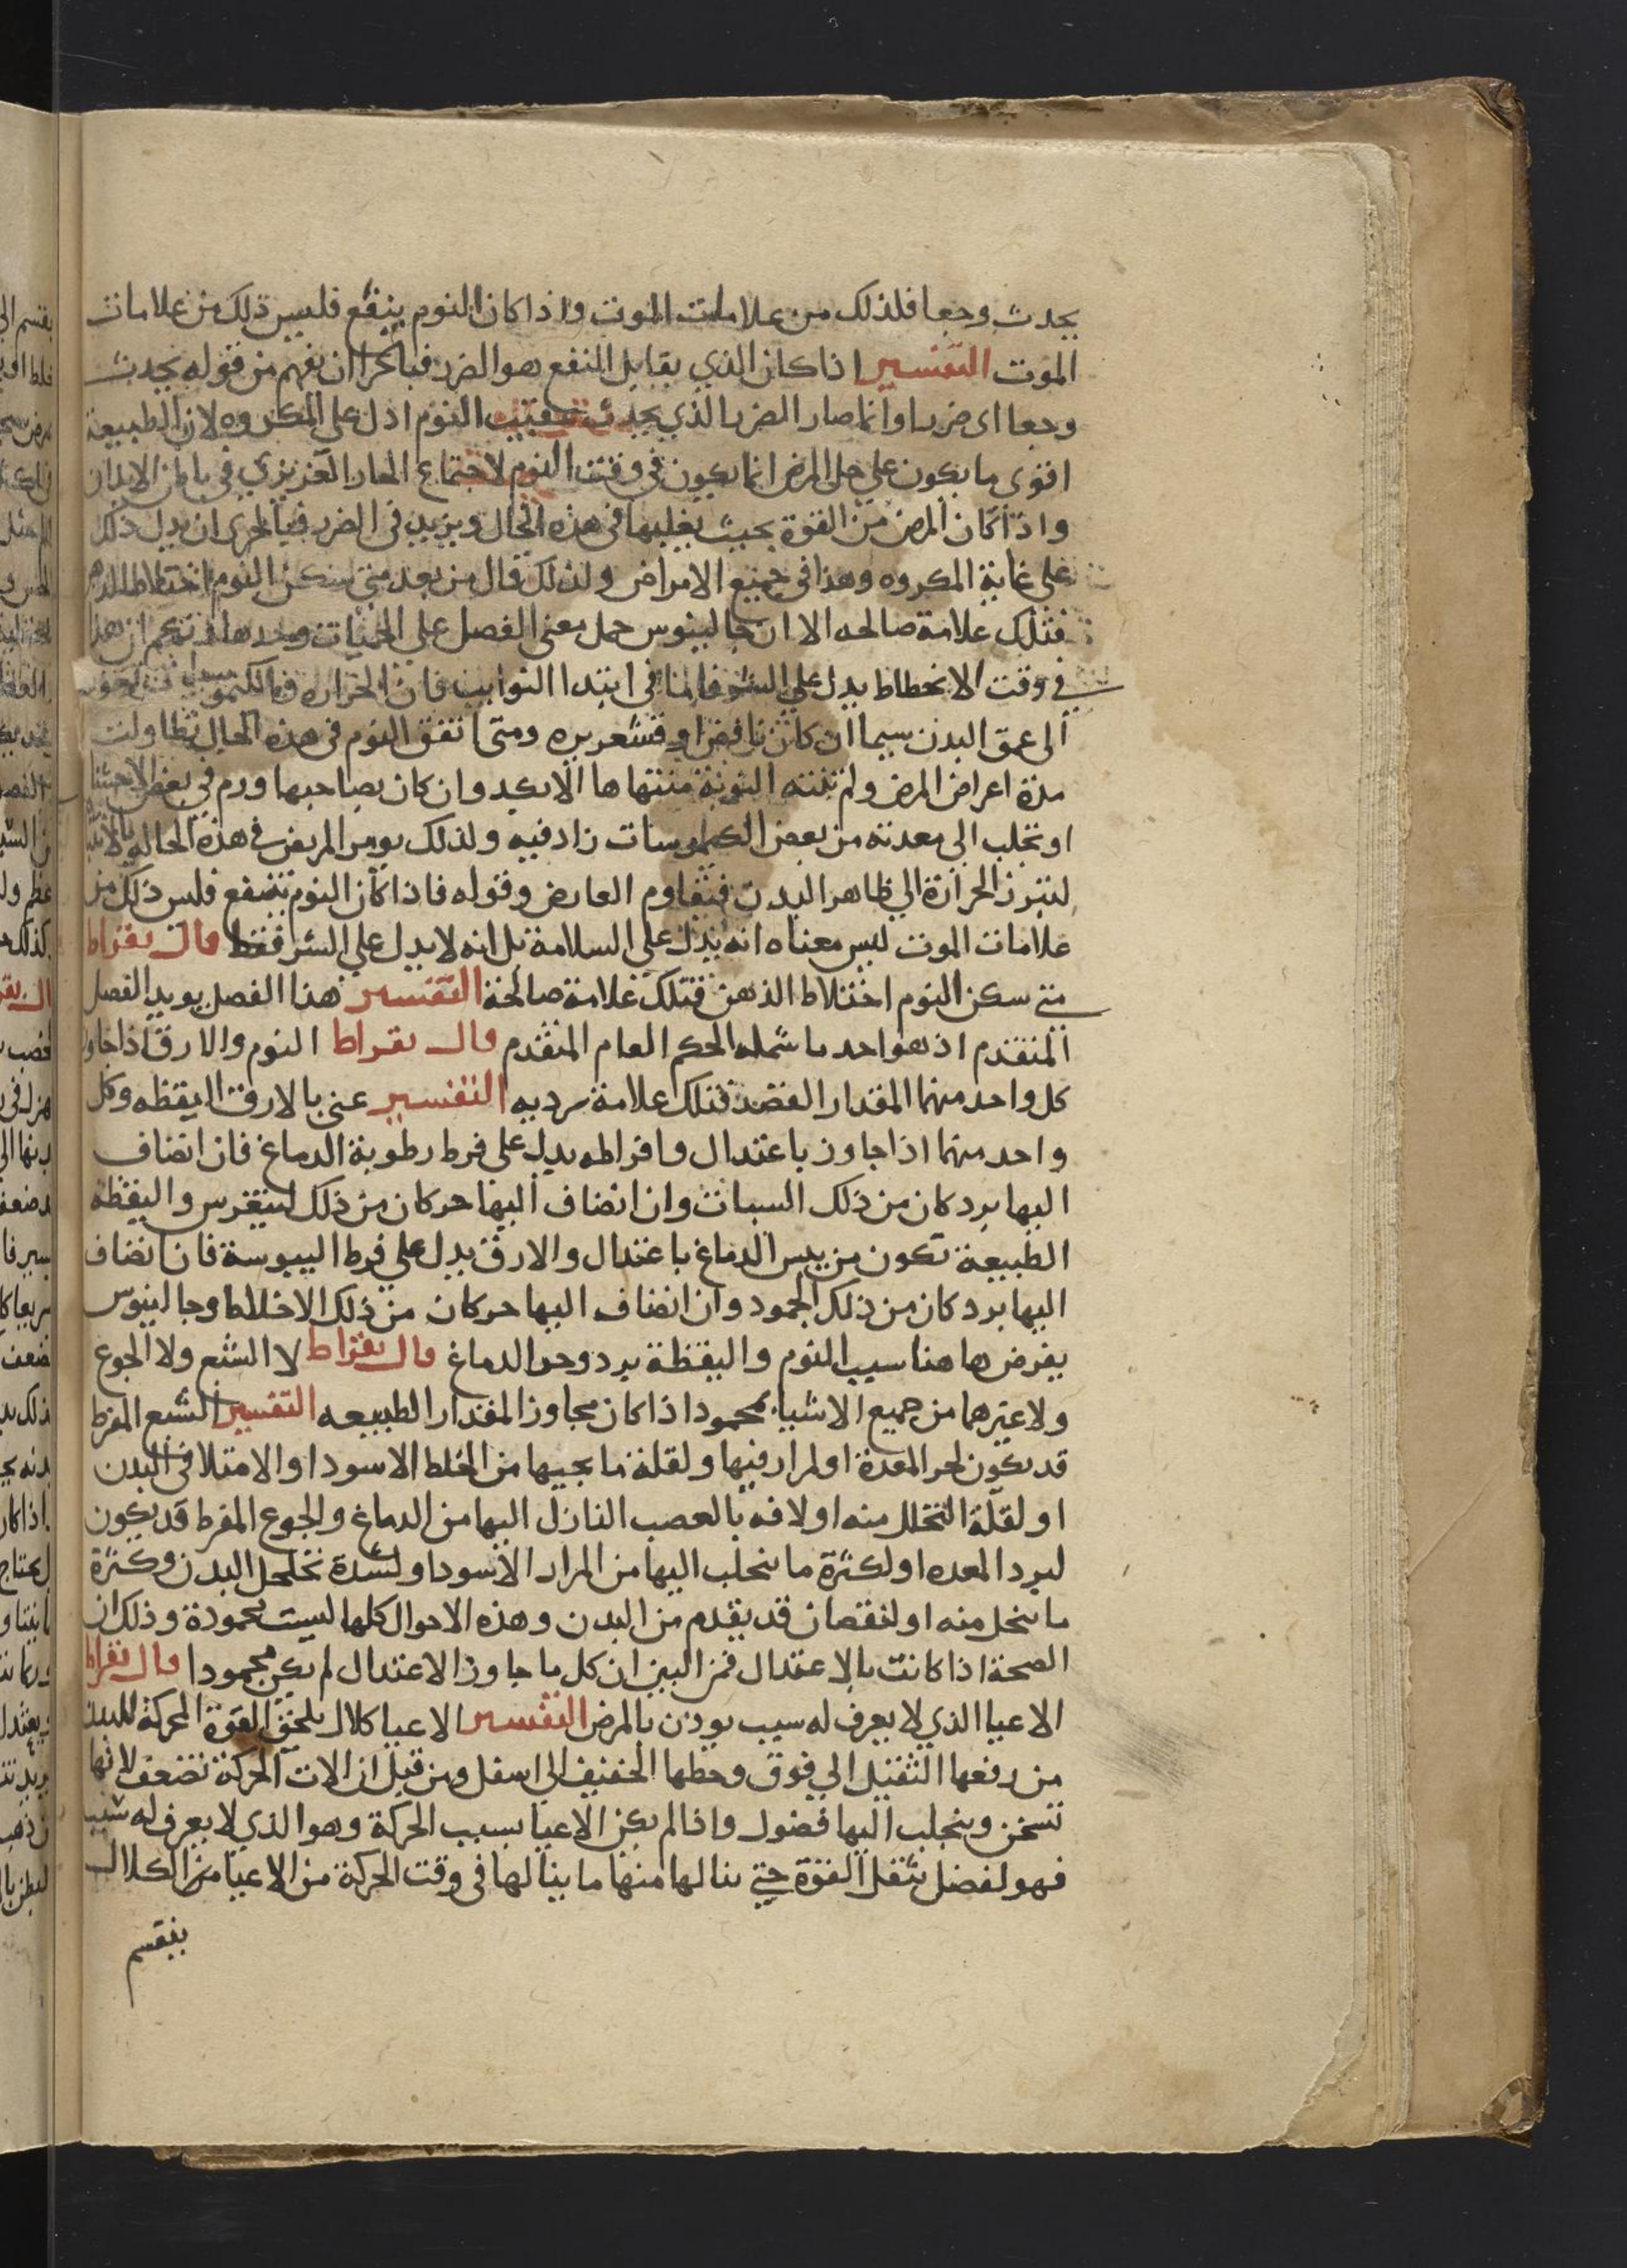 يحدث وجعا فلذلك من علامات الموت واذا كان النوم ينفع فليس ذلك من علامات
الموت التفسير اذا كان الذي يقابل المنفع هو الضرر فبالحرا ان يفهم من قوله يحدث
وجعا اى ضررا وانما صار الضرر الذي يحدث عقيب النوم ادل على المكروه لان الطبيعة
اقوى ما يكون على حل المرض انما يكون في وقت النوم لاجتماع الحار الغريزي في باطن الابدان
واذا كان المرض من القوة بحيث يغلبها في هذه الحال ويزيد في الضرر فبالحرى ان يدل ذلك
على غاية المكروه وهذا في جميع الامراض ولذلك قال من بعد متى سكن النوم اختلاط الذهن
فتلك علامة صالحه الا ان جالينوس حمل معنى الفصل على الحميات وحدها فزعم ان هذا
في وقت الانحطاط يدل على السو فاما في ابتدا النوايب فان الحراره والكيموسات
الى عمق البدن سيما ان كان نافض او قشعريره ومتى اتفق النوم في هذه الحال تطاولت
مدة اعراض المرض ولم تنته النوبة منتهاها الا بكد وان كان بصاحبها ورم في بعض الاحشا
او تجلب الى معدته من بعض الكيموسات زاد فيه ولذلك يومر المريض في هذه الحاله بالانتباه
لتبرز الحرارة الى ظاهر البدن فتقاوم العارض وقوله فاذا كان النوم ينفع فليس ذلك من
علامات الموت ليس معناه انه يدل على السلامة بل انه لا يدل على الشر فقط قال بقراط
متى سكن النوم اختلاط الذهن فتلك علامة صالحة التفسير هذا الفصل يويد الفصل
المتقدم اذ هو احد ما شمله الحكم العام المتقدم قال بقراط النوم والارق اذا جاوز
كل واحد منهما المقدار القصد فتلك علامة رديه التفسير عنى بالارق اليقظه وكل
واحد منهما اذا جاوز باعتدال وافراطه يدل على فرط رطوبة الدماغ فان انضاف
اليها برد كان من ذلك السبات وان انضاف اليها حر كان من ذلك ليتغرس واليقظة
الطبيعة تكون من يبس الدماغ باعتدال والارق يدل على فرط اليبوسة فان انضاف
اليها برد كان من ذلك الجمود وان انضاف اليها حر كان من ذلك الاختلاط وجالينوس
يفرض هاهنا سبب النوم واليقظة برد وحر الدماغ قال بقراط لا الشبع ولا الجوع
ولا غيرهما من جميع الاشيا بمحمود اذا كان مجاوز المقدار الطبيعه التفسير الشبع المفرط
قد يكون لحر المعدة او لمرار فيها ولقلة ما يجيها من الخلط الاسود او الامتلا في البدن
او لقلة التحلل منه او لافه بالعصب النازل اليها من الدماغ والجوع المفرط قد يكون
لبرد المعده او لكثرة ما ينجلب اليها من المرار الاسود او لشدة تخلحل البدن وكثرة
ما ينحل منه او لنقصان قد يقدم من البدن وهذه الاحوال كلها ليست بمحمودة وذلك ان
الصحة اذا كانت بالاعتدال فمن البين ان كل ما جاوز الاعتدال لم يكن محمودا قال بقراط
الاعيا الذي لا يعرف له سبب يوذن بالمرض التفسير الاعيا كلال يلحق القوة المحركة للبدن
من رفعها الثقيل الى فوق وحطها الخفيف الى اسفل ومن قبل ان الات الحركة تضعف لانها
تسخن وينجلب اليها فضول واذا لم يكن الاعيا بسبب الحركة وهو الذي لا يعرف له سبب
فهو لفضل يثقل القوة حتى ينالها منها ما ينالها في وقت الحركة من الاعيا من الكلال
ينقسم